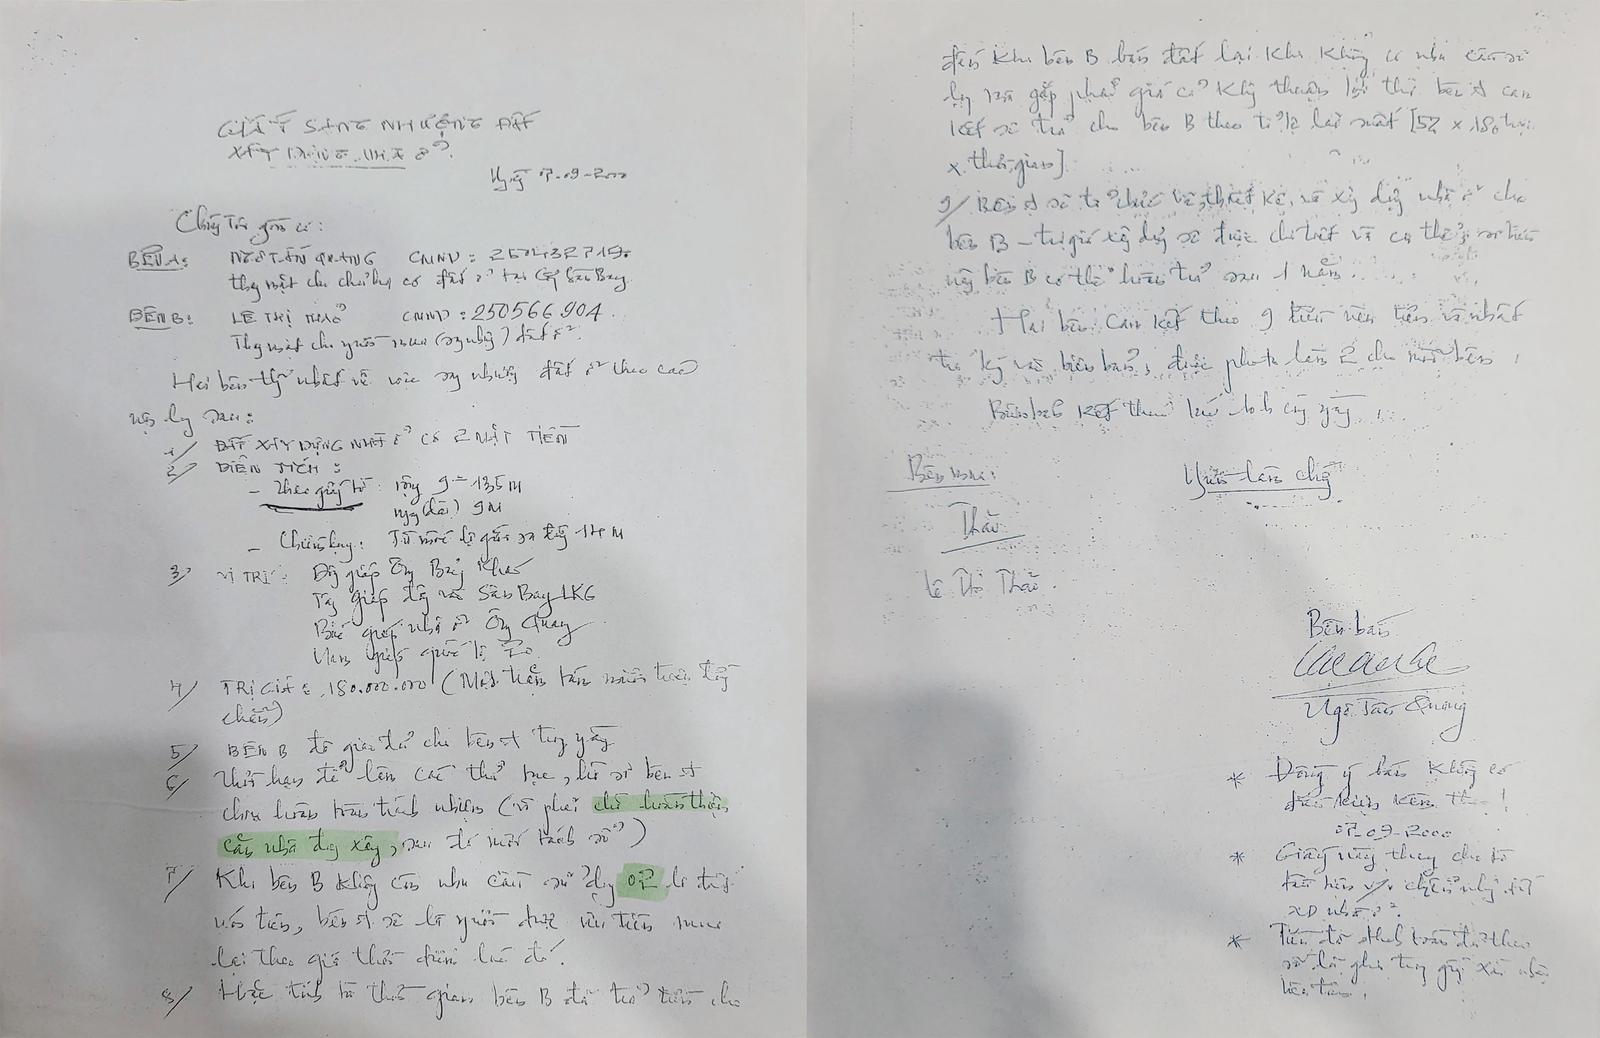 GIẤY SANG NHƯỢNG ĐẤT
XÂY DỰNG NHÀ Ở
Ngày 07-09-2000
Chúng tôi gồm có:
BÊN A: NGÔ TẤN QUANG CMND: 250432719
thay mặt cho chủ hộ có đất ở tại Sân Bay
BÊN B: LÊ THỊ THẢO CMND: 250566904
Thay mặt cho người mua (sang nhượng) đất ở
Hai bên thống nhất về việc sang nhượng đất ở theo các
nội dung sau:
1/ ĐẤT XÂY DỰNG NHÀ Ở CÓ 2 MẶT TIỀN
2/ DIỆN TÍCH:
- Theo giấy tờ: rộng 9 - 13,5 M
ngang (dài) 9M
- Chiều ngang: Từ mốc lộ giới ra đường 14 M
3/ VỊ TRÍ: Đông giáp Ông Bảy Khác
Tây giáp đường vào Sân Bay LKG
Bắc giáp nhà ở Ông Quang
Nam giáp quốc lộ 20
4/ TRỊ GIÁ: 180.000.000 (Một trăm tám mươi triệu đồng
chẵn)
5/ BÊN B đã giao đủ cho bên A
6/ Thời hạn để làm các thủ tục, hồ sơ bên A
chịu hoàn toàn trách nhiệm (và phải chờ hoàn thiện
căn nhà đang xây, sau đó mới tách sổ)
7/ Khi bên B không còn nhu cầu sử dụng 02 lô đất
nói trên, bên A sẽ là người được ưu tiên mua
lại theo giá thời điểm lúc đó.
8/ Hoặc tính từ thời gian bên B đã trả tiền cho
đến khi bên B bán đất lại khi không có nhu cầu sử
dụng mà gặp phải giá cả không thuận lợi thì bên A cam
kết sẽ trả cho bên B theo tỉ lệ lãi suất [5% x 180 triệu
x thời gian]
9/ Bên A sẽ tổ chức vẽ, thiết kế, và xây dựng nhà ở cho
bên B - trị giá xây dựng sẽ được chi tiết và cụ thể,
bên B có thể hoàn trả sau 1 năm.
Hai bên cam kết theo 9 điều nêu trên và nhất
trí ký vào biên bản, được photo làm 2 cho mỗi bên
Biên bản kết thúc lúc cùng ngày.
Bên mua: Người làm chứng
Thảo
Lê Thị Thảo.
Bên bán
Ngô Tấn Quang
* Đồng ý bán không có
điều kiện kèm theo!
07-09-2000
* Giấy này thay cho tờ
v/v chuyển nhượng đất
XD nhà ở.
* Tiền đã thanh toán đủ theo
số đã ghi trong giấy xác nhận
bên trên.